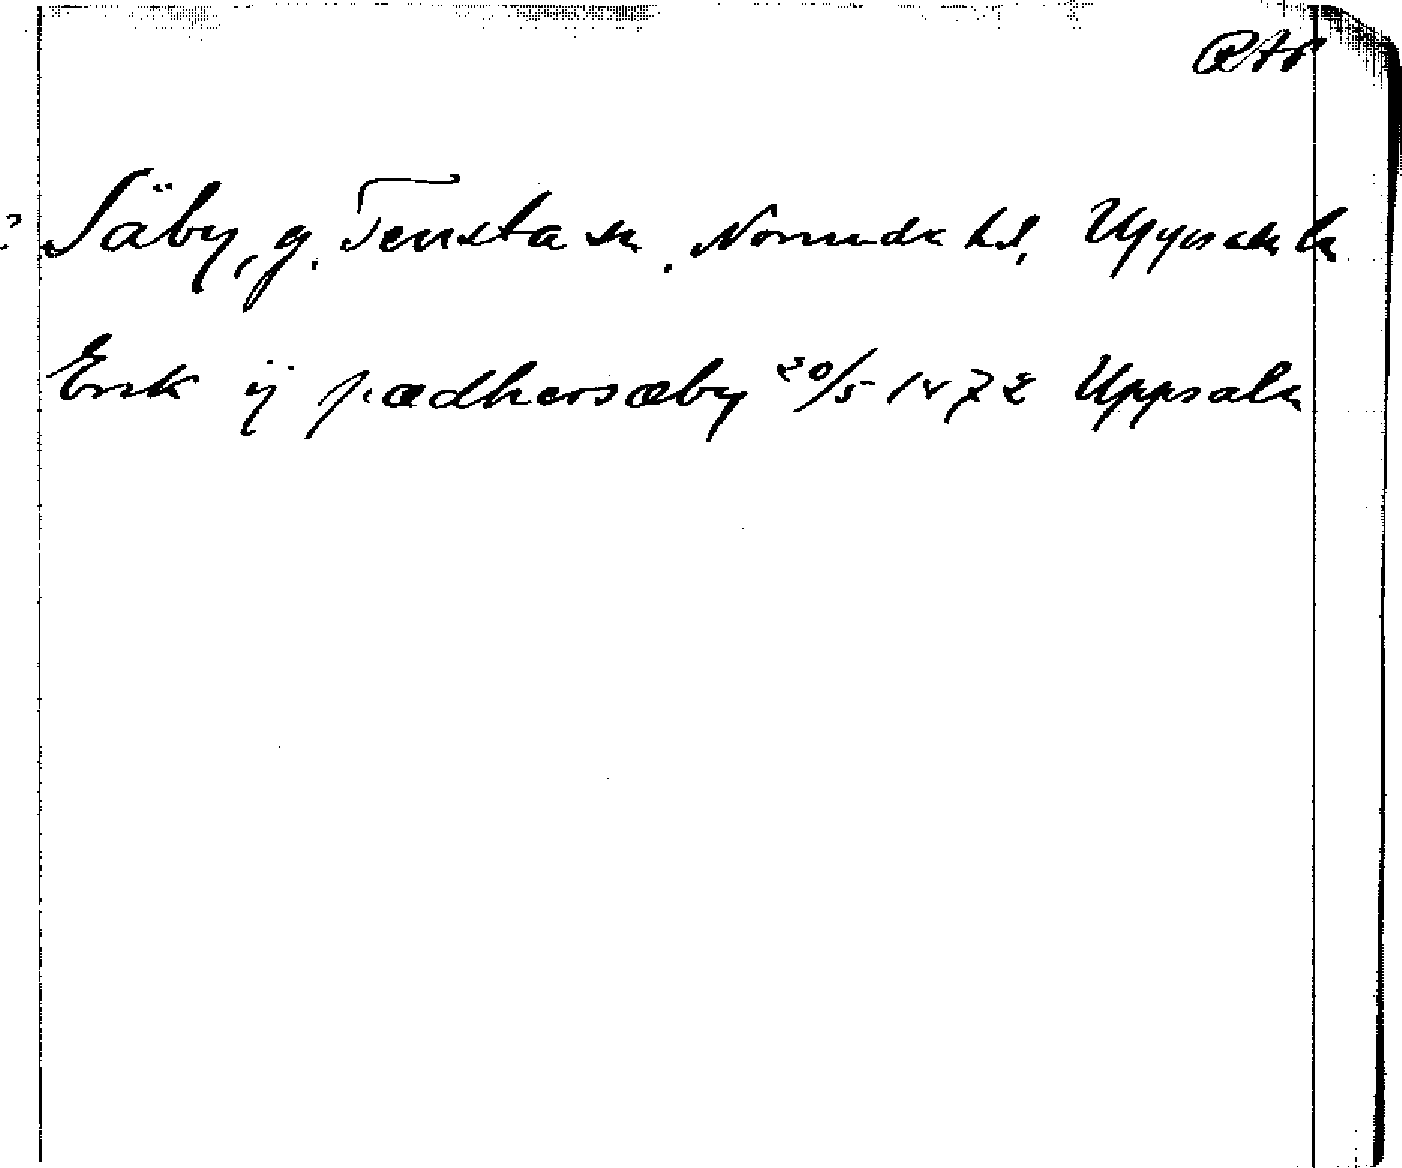 RAP
? Säby, g. Tensta sn. Norunda hd, Uppsala ln
Erik ij pædhersæby 20/5 1472 Uppsala